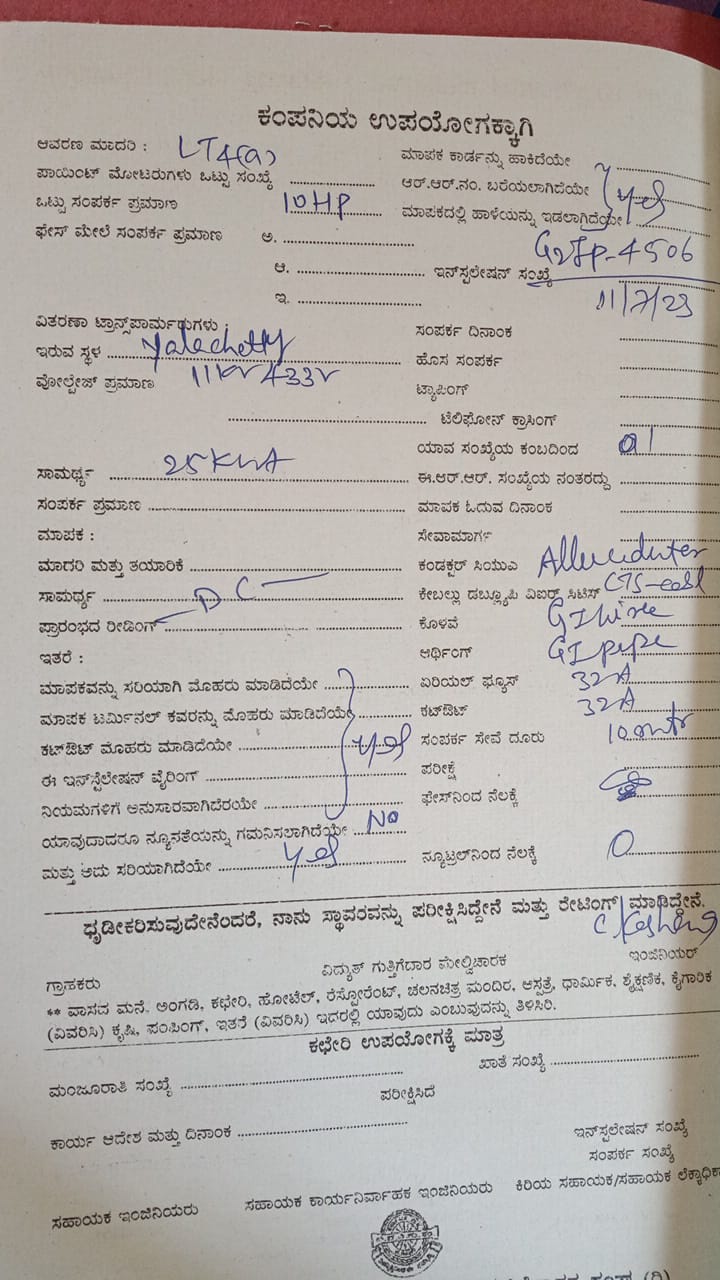 ಕಂಪನಿಯ ಉಪಯೋಗಕ್ಕಾಗಿ
ಆವರಣ ಮಾದರಿ : LT4(a)
ಮಾಪಕ ಕಾರ್ಡನ್ನು ಹಾಕಿದೆಯೇ
ಪಾಯಿಂಟ್ ಮೋಟರುಗಳು ಒಟ್ಟು ಸಂಖ್ಯೆ
ಆರ್.ಆರ್.ನಂ. ಬರೆಯಲಾಗಿದೆಯೇ yes
ಒಟ್ಟು ಸಂಪರ್ಕ ಪ್ರಮಾಣ 10HP
ಮಾಪಕದಲ್ಲಿ ಹಾಳೆಯನ್ನು ಇಡಲಾಗಿದೆಯೇ
ಫೇಸ್ ಮೇಲೆ ಸಂಪರ್ಕ ಪ್ರಮಾಣ ಅ.
ಆ. ಇನ್‌ಸ್ಪಲೇಷನ್ ಸಂಖ್ಯೆ 4506
ಇ. 11/7/23
ವಿತರಣಾ ಟ್ರಾನ್ಸ್‌ಪಾರ್ಮರುಗಳು :
ಸಂಪರ್ಕ ದಿನಾಂಕ
ಇರುವ ಸ್ಥಳ Yalachetty
ಹೊಸ ಸಂಪರ್ಕ
ವೋಲ್ಟೇಜ್ ಪ್ರಮಾಣ 11kv 433v
ಟ್ಯಾಪಿಂಗ್
ಟೆಲಿಫೋನ್ ಕ್ರಾಸಿಂಗ್
ಯಾವ ಸಂಖ್ಯೆಯ ಕಂಬದಿಂದ 01
ಸಾಮರ್ಥ್ಯ 25KVA
ಈ.ಆರ್.ಆರ್. ಸಂಖ್ಯೆಯ ನಂತರದ್ದು
ಸಂಪರ್ಕ ಪ್ರಮಾಣ
ಮಾಪಕ ಓದುವ ದಿನಾಂಕ
ಮಾಪಕ :
ಸೇವಾಮಾರ್ಗ
ಮಾದರಿ ಮತ್ತು ತಯಾರಿಕೆ
ಕಂಡಕ್ಟರ್ ಸಿಯುಎ
ಸಾಮರ್ಥ್ಯ DC
ಕೇಬಲ್ಲು ಡಬ್ಲ್ಯೂಪಿ ವಿಐರ್ ಸಿಟಿಸ್
ಪ್ರಾರಂಭದ ರೀಡಿಂಗ್
ಕೊಳವೆ GI wire
ಇತರೆ :
ಆರ್ಥಿಂಗ್ GI pipe
ಮಾಪಕವನ್ನು ಸರಿಯಾಗಿ ಮೊಹರು ಮಾಡಿದೆಯೇ
ಏರಿಯಲ್ ಫ್ಯೂಸ್ 32A
ಮಾಪಕ ಟರ್ಮಿನಲ್ ಕವರನ್ನು ಮೊಹರು ಮಾಡಿದೆಯೇ
ಕಟ್‌ಔಟ್ 32A
ಕಟ್‌ಔಟ್ ಮೊಹರು ಮಾಡಿದೆಯೇ yes
ಸಂಪರ್ಕ ಸೇವೆ ದೂರು 100mtr
ಈ ಇನ್‌ಸ್ಪೆಲೇಷನ್ ವೈರಿಂಗ್
ಪರೀಕ್ಷೆ
ನಿಯಮಗಳಿಗೆ ಅನುಸಾರವಾಗಿದೆರಯೇ
ಫೇಸ್‌ನಿಂದ ನೆಲಕ್ಕೆ
ಯಾವುದಾದರೂ ನ್ಯೂನತೆಯನ್ನು ಗಮನಿಸಲಾಗಿದೆಯೇ No
ಮತ್ತು ಅದು ಸರಿಯಾಗಿದೆಯೇ yes
ನ್ಯೂಟ್ರಲ್‌ನಿಂದ ನೆಲಕ್ಕೆ 0
ಧೃಡೀಕರಿಸುವುದೇನೆಂದರೆ, ನಾನು ಸ್ಥಾವರವನ್ನು ಪರೀಕ್ಷಿಸಿದ್ದೇನೆ ಮತ್ತು ರೇಟಿಂಗ್ ಮಾಡಿದ್ದೇನೆ.
ಗ್ರಾಹಕರು ವಿದ್ಯುತ್ ಗುತ್ತಿಗೆದಾರ ಮೇಲ್ವಿಚಾರಕ ಇಂಜಿನಿಯರ್
** ವಾಸದ ಮನೆ, ಅಂಗಡಿ, ಕಛೇರಿ, ಹೋಟೆಲ್, ರೆಸ್ಟೋರೆಂಟ್, ಚಲನಚಿತ್ರ ಮಂದಿರ, ಆಸ್ಪತ್ರೆ, ಧಾರ್ಮಿಕ, ಶೈಕ್ಷಣಿಕ, ಕೈಗಾರಿಕ
(ವಿವರಿಸಿ) ಕೃಷಿ, ಪಂಪಿಂಗ್, ಇತರೆ (ವಿವರಿಸಿ) ಇದರಲ್ಲಿ ಯಾವುದು ಎಂಬುವುದನ್ನು ತಿಳಿಸಿರಿ.
ಕಛೇರಿ ಉಪಯೋಗಕ್ಕೆ ಮಾತ್ರ
ಮಂಜೂರಾತಿ ಸಂಖ್ಯೆ ಖಾತೆ ಸಂಖ್ಯೆ
ಪರೀಕ್ಷಿಸಿದೆ
ಕಾರ್ಯ ಆದೇಶ ಮತ್ತು ದಿನಾಂಕ
ಇನ್‌ಸ್ಪಲೇಷನ್ ಸಂಖ್ಯೆ
ಸಂಪರ್ಕ ಸಂಖ್ಯೆ
ಸಹಾಯಕ ಇಂಜಿನಿಯರು ಸಹಾಯಕ ಕಾರ್ಯನಿರ್ವಾಹಕ ಇಂಜಿನಿಯರು ಕಿರಿಯ ಸಹಾಯಕ/ಸಹಾಯಕ